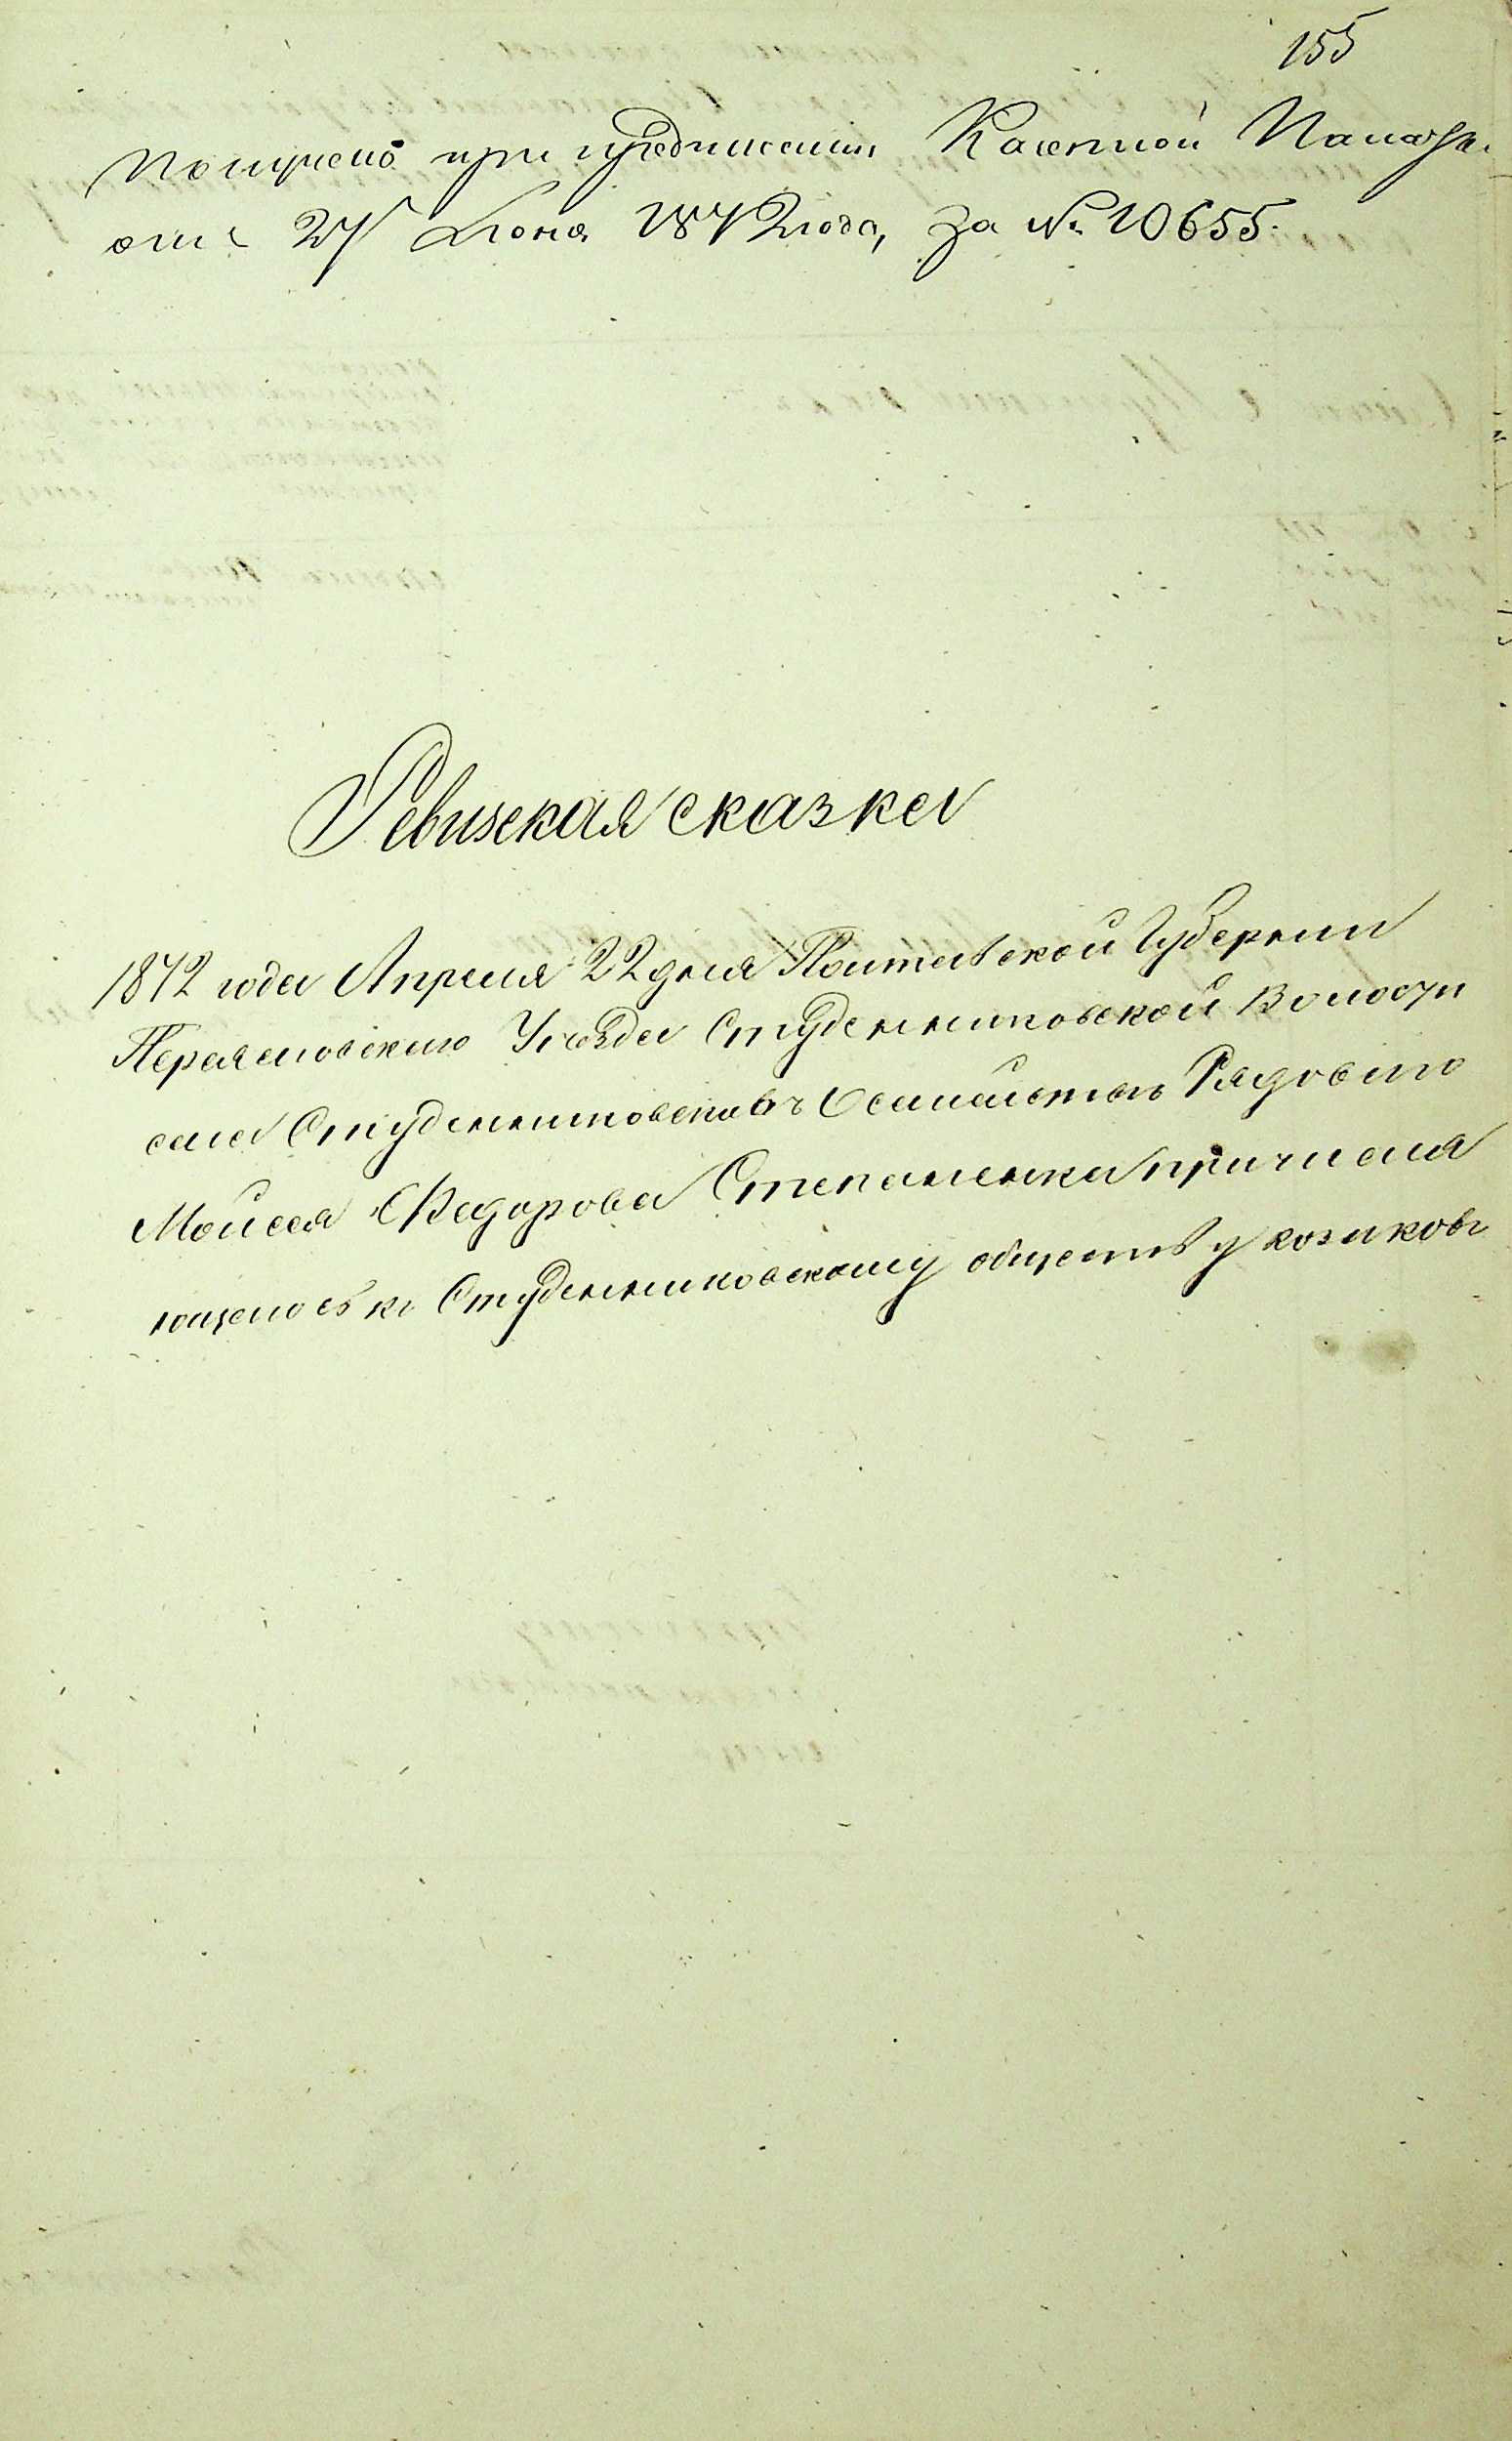 155
Получено при предписании Казенной Палаты
отъ 27 Іюня 1872 года, за № 10655.
Ревизская сказка
1872 года Апреля 22 дня Полтавской Губернии
Переяславского Уезда Студенниковской Волости
села Студенниковъ Осемействе Рядового
Мойсея Федорова Степаненка причисля
ющегось къ Студенниковскому обществу козаковъ